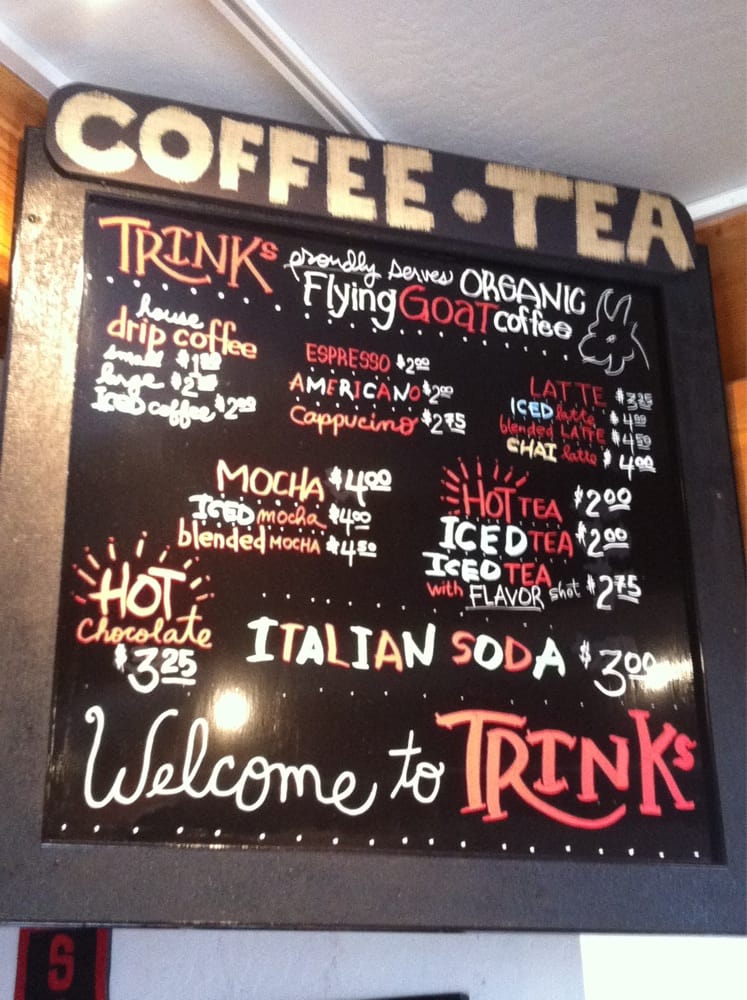 COFFEE • TEA
TRINKs proudly serves ORGANIC
Flying GOAT coffee
house
drip coffee
small
large
ICED coffee $2.00
ESPRESSO $2.00
AMERICANO $2.00
Cappucino $2.75
LATTE $3.25
ICED latte $4.00
blended LATTE $4.50
CHAI latte $4.00
MOCHA $4.00
ICED mocha $4.00
blended MOCHA $4.50
HOT TEA $2.00
ICED TEA $2.00
ICED TEA
with FLAVOR shot $2.75
HOT
Chocolate
$3.25
ITALIAN SODA $3.00
Welcome to TRINKs
S